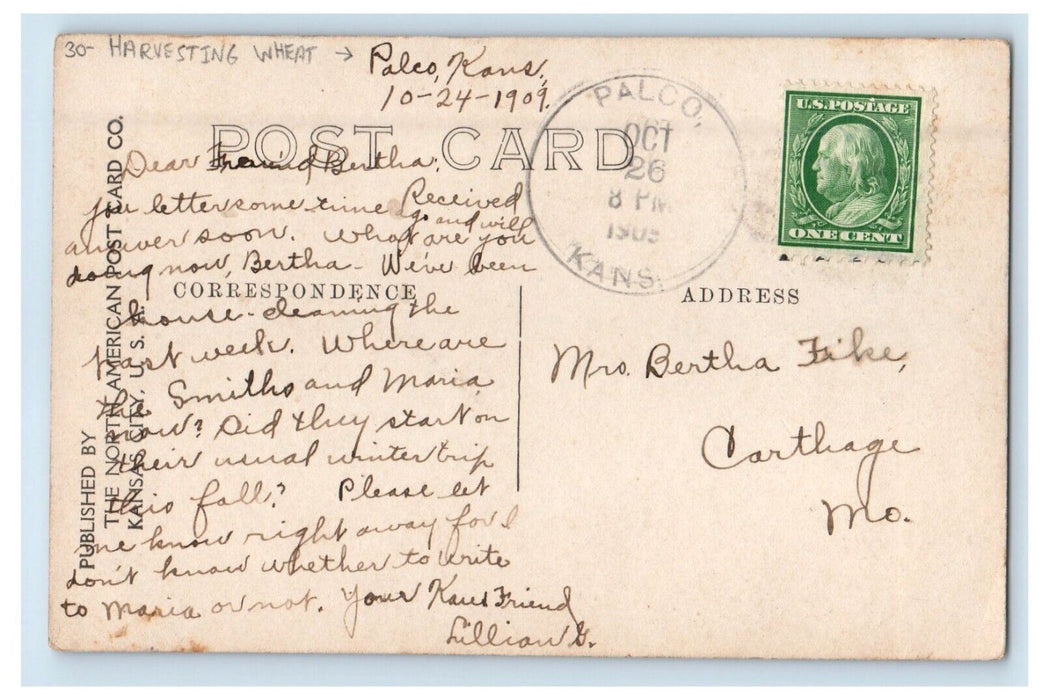 30- HARVESTING WHEAT →
Palco, Kans,
10-24-1909.
POST CARD
PALCO,
OCT
26
8 PM
1909
KANS.
U.S. POSTAGE
ONE CENT
Dear Freind Bertha:
you letter some time Received
ago and will
answer soon. What are you
doing now, Bertha- We've been
CORRESPONDENCE
house-cleaning the
past week. Where are
the Smiths and Maria
now? Did they start on
their usual winter trip
this fall? Please let
me know right away for I
don't know whether to write
to Maria or not. Your Kans Friend
Lillian G.
ADDRESS
Mrs. Bertha Fike,
Carthage
Mo.
PUBLISHED BY
THE NORTH AMERICAN POST CARD CO.
KANSAS CITY, U. S. A.